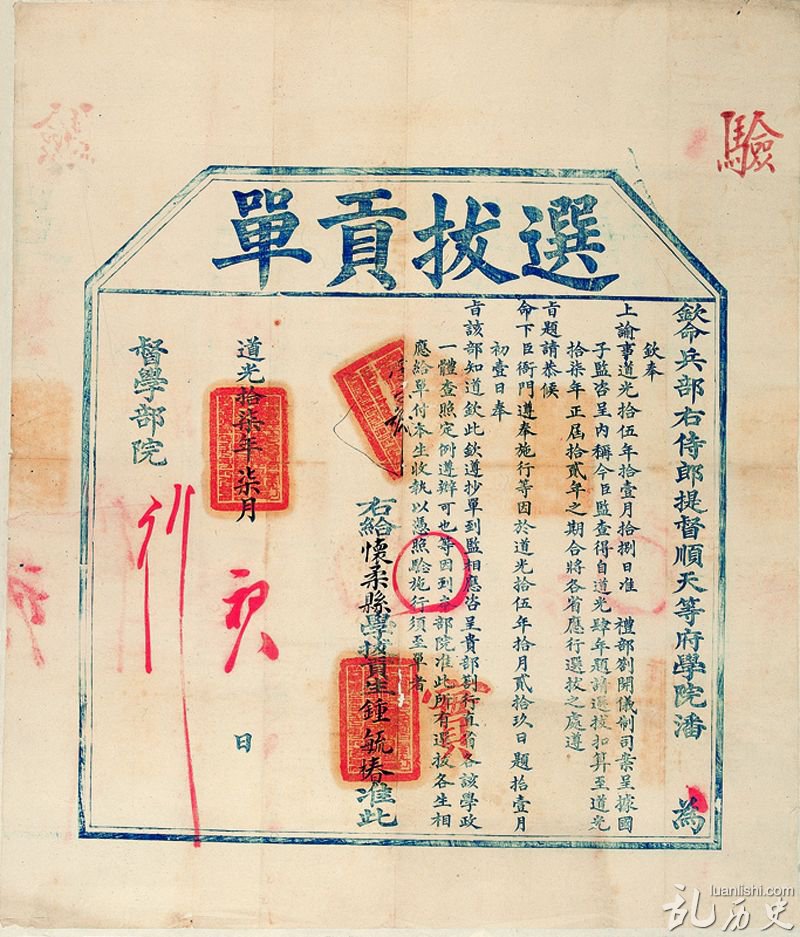 驗
選拔貢單
欽命兵部右侍郎提督順天等府學院潘 為
欽奉
上諭事道光拾伍年拾壹月拾捌日准 禮部劄開儀制司案呈據國
子監咨呈內稱今臣監查得自道光肆年題請選拔扣算至道光
拾柒年正屆拾貳年之期合將各省應行選拔之處遵
旨題請恭候
命下臣衙門遵奉施行等因於道光拾伍年拾月貳拾玖日題拾壹月
初壹日奉
旨該部知道欽此欽遵抄單到監相應咨呈貴部劄行直省各該學政
一體查照定例遵辦可也等因到本部院准此所有選拔各生相
應給單付本生收執以憑照驗施行須至單者
右給懷柔縣學拔貢生鍾毓椿准此
實
道光拾柒年柒月 初 日
督學部院
行
luanlishi.com
乱历史